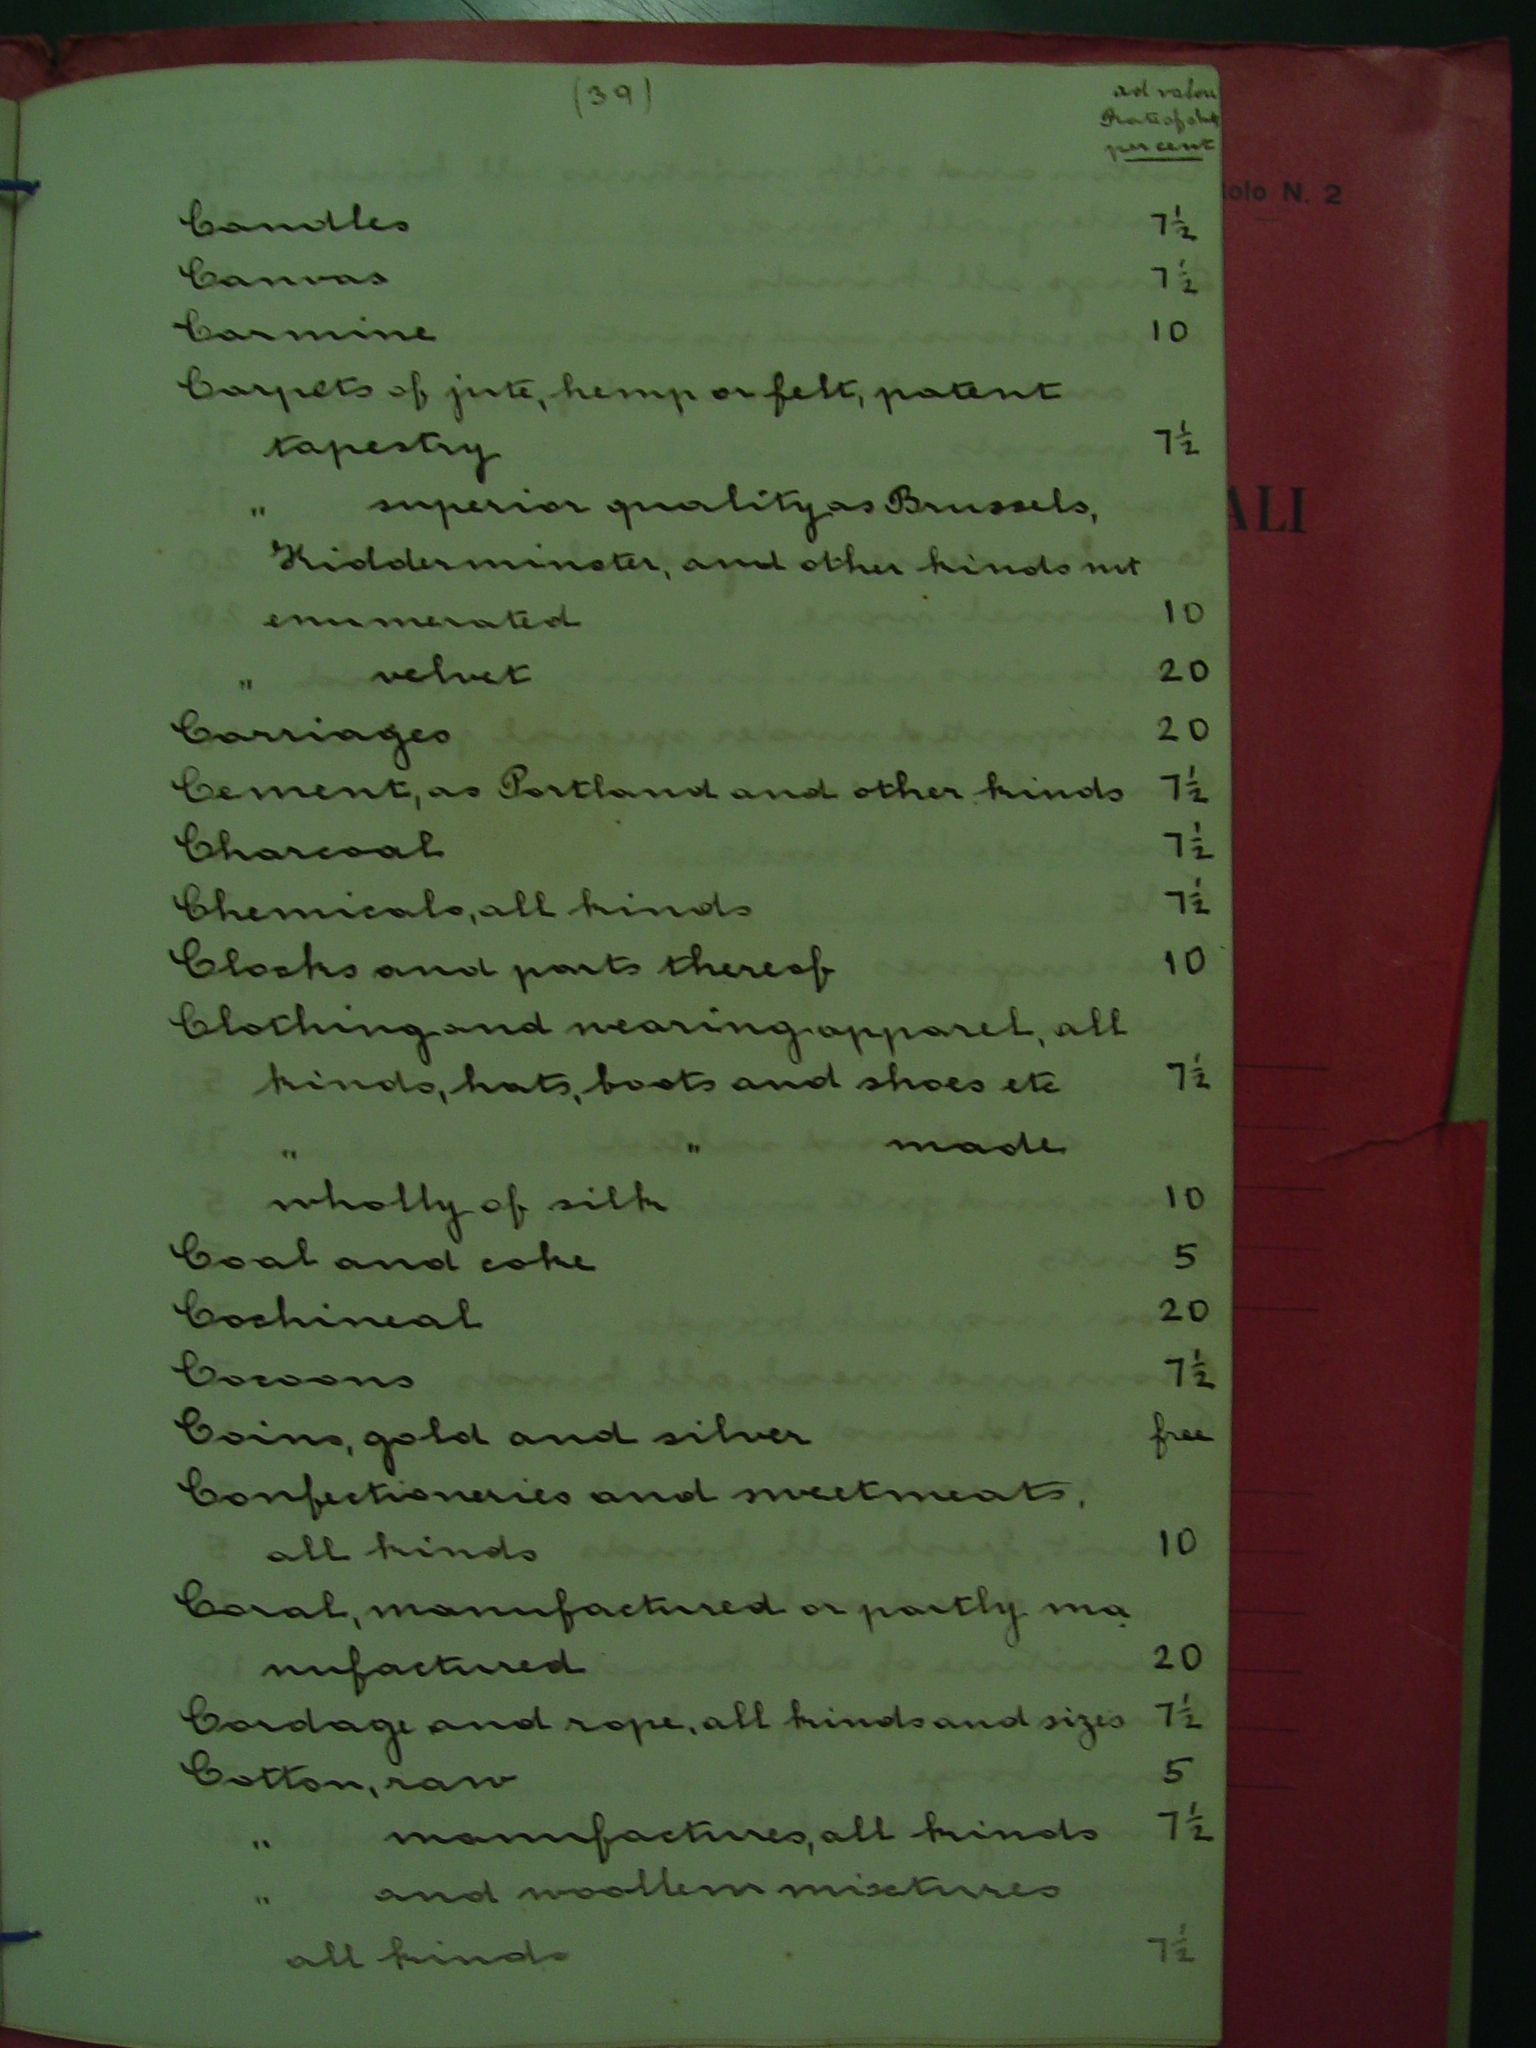 (39)
ad valou
Rate of dut
per cent
tolo N. 2
Candles 7½
Canvas 7½
Carmine 10
Carpets of jute, hemp or felt, patent
tapestry 7½
" superior quality as Brussels,
ALI
Kidderminster, and other kinds not
enumerated 10
" velvet 20
Carriages 20
Cement, as Portland and other kinds 7½
Charcoal 7½
Chemicals, all kinds 7½
Clocks and parts thereof 10
Clothing and wearing apparel, all
kinds, hats, boots and shoes etc 7½
" " made
wholly of silk 10
Coal and coke 5
Cochineal 20
Cocoons 7½
Coins, gold and silver free
Confectioneries and sweetmeats,
all kinds 10
Coral, manufactured or partly ma
nufactured 20
Cordage and rope, all kinds and sizes 7½
Cotton, raw 5
" manufactures, all kinds 7½
" and woollem mixtures
all kinds 7½